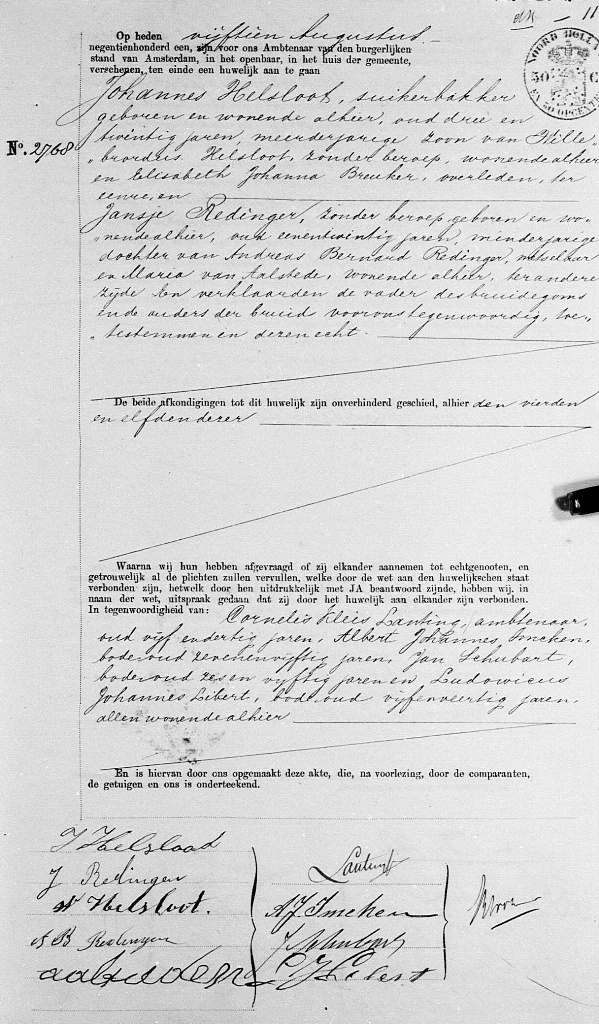 11
NOORD HOLL
50 C
EN 50 OPCENTEN
Op heden vijftien Augustus
negentienhonderd een, zijn voor ons Ambtenaar van den burgerlijken
stand van Amsterdam, in het openbaar, in het huis der gemeente,
verschenen, ten einde een huwelijk aan te gaan
Johannes Helsloot, suikerbakker
geboren en wonende alhier, oud drie en
twintig jaren, meerderjarige zoon van Wille-
No. 2768
„brordus Helsloot, zonder beroep, wonende alhier
en Elisabeth Johanna Breuker, overleden, ter
eenre, en
Jansje Redinger, zonder beroep, geboren en wo-
„nende alhier, oud eenentwintig jaren, minderjarige
dochter van Andreas Bernard Redinger, metselaar
en Maria van Aalstede, wonende alhier, ter andere
zijde En verklaarden de vader des bruidegoms
en de ouders der bruid voor ons tegenwoordig, toe-
„testemmen in deren echt.
De beide afkondigingen tot dit huwelijk zijn onverhinderd geschied, alhier den vierden
en elfden dezer
Waarna wij hun hebben afgevraagd of zij elkander aannemen tot echtgenooten, en
getrouwelijk al de plichten zullen vervullen, welke door de wet aan den huwelijkschen staat
verbonden zijn, hetwelk door hen uitdrukkelijk met JA beantwoord zijnde, hebben wij, in
naam der wet, uitspraak gedaan dat zij door het huwelijk aan elkander zijn verbonden.
In tegenwoordigheid van: Cornelis Kleis Lanting, ambtenaar,
oud vijf en dertig jaren, Albert Johannes Imcken,
bode oud zevenenvijftig jaren, Jan Schubart,
bode oud zes en vijftig jaren en Ludowicus
Johannes Libert, bode oud vijfenveertig jaren,
allen wonende alhier
En is hiervan door ons opgemaakt deze akte, die, na voorlezing, door de comparanten,
de getuigen en ons is onderteekend.
J Helsloot
J Redinger
W Helsloot.
A B Redinger
Lanting
A J Imcken
J Schubart
L J Libert